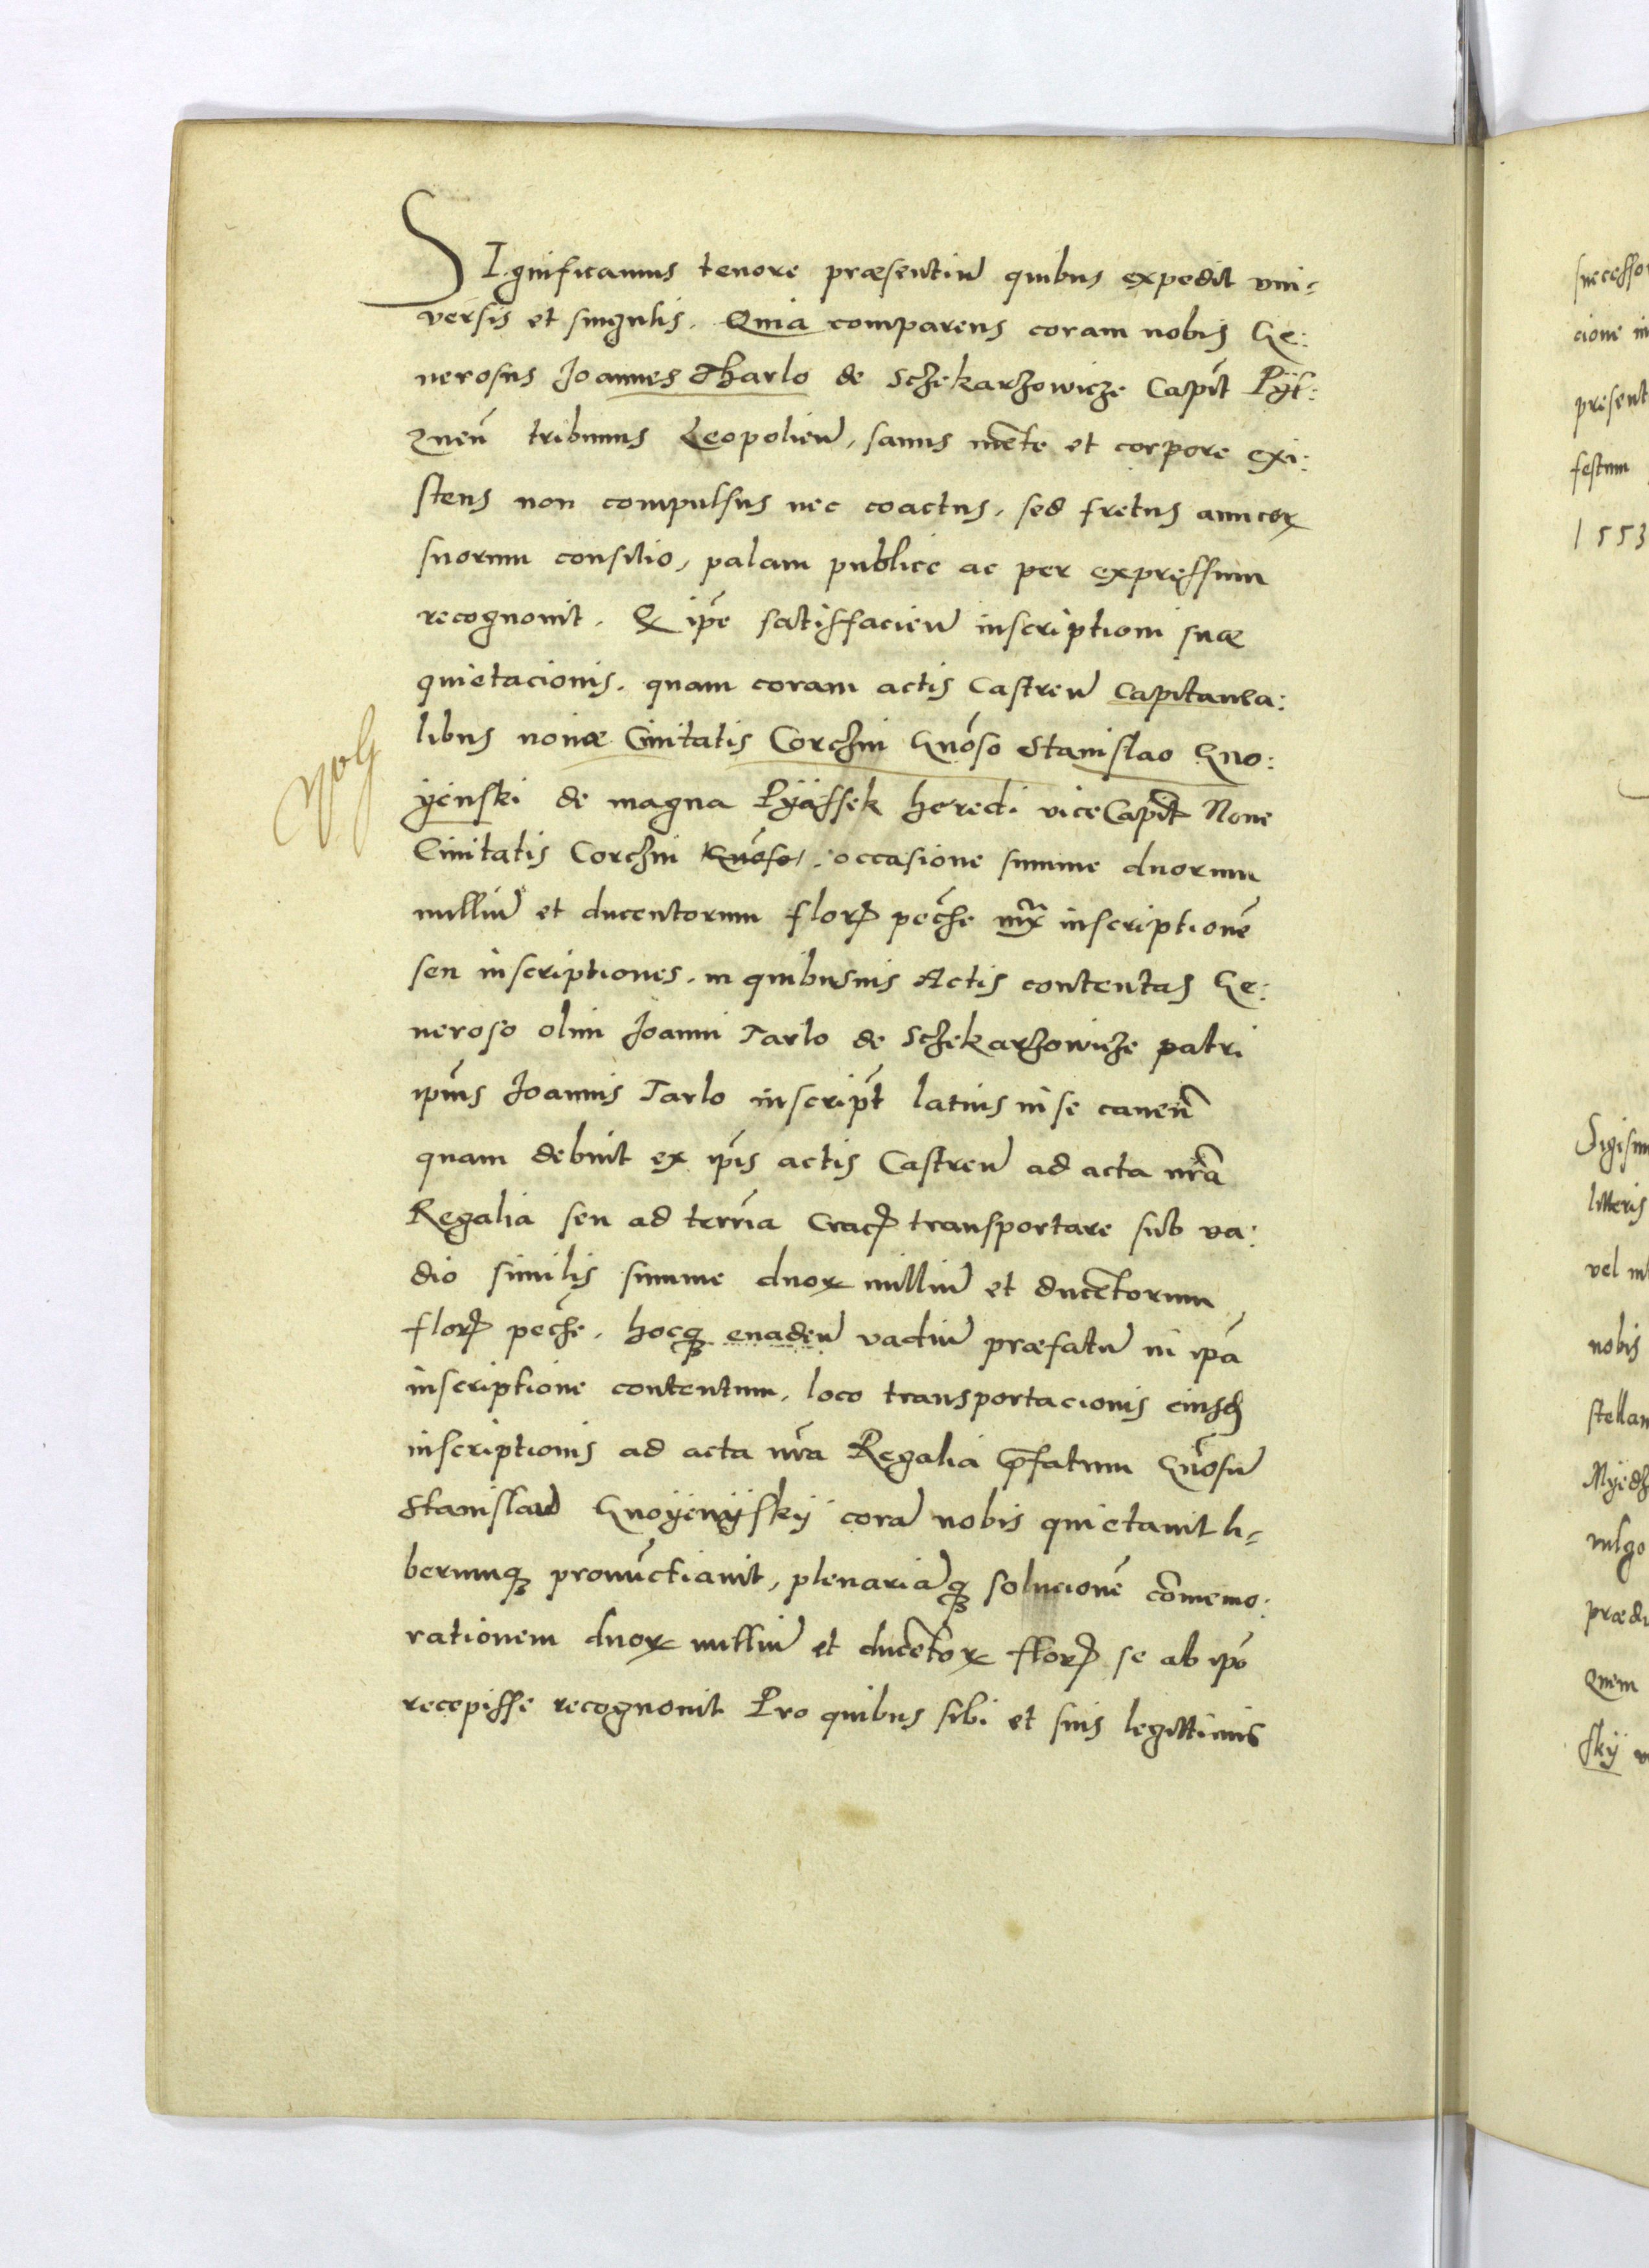 SIgnificamus tenore præsentiũ quibus expedit vni=
versis et singulis. Quia comparens coram nobis Ge:
nerosus Joannes Tharlo de Sczekarzowicze Capit̃ Pÿl:
znen̄ tribunus Leopolien̄, sanus mẽte et corpore exi:
stens non compulsus nec coactus, sed fretus amicorꝝ
suorum consilio, palam publice ac per expressum
recognouit. Q ip̃e satisfacien̄ inscriptioni suæ
quietacionis. quam coram actis Castren̄ Capitanea:
libus nouæ Ciuitatis Corczin Gnõso Stanislao Gno:
ÿenski de magna Pÿassek heredi viceCapit̃ Noue
Ciuitatis Corczin Gnõso, occasione summe duorum
milliũ et ducentorum florꝝ pecz̃e inscriptionẽ
seu inscriptiones. in quibusuis Actis contentas Ge:
neroso olim Joanni Tarlo de Sczekarzowicze patri
ip̃ius Joannis Tarlo inscript̃ latius in se cauen̄
quam debuit ex ip̃is actis Castren̄ ad acta nr̃a
Regalia seu ad terrr̃ia Cracꝝ transportare sub va:
dio similis summe duorꝝ milliũ et ducẽtorum
florꝝ pecz̃e. hocqꝫ euaden̄ vadiũ præfatũ in ip̃a
inscriptione contentum. loco transportacionis eiusd̃
inscriptionis ad acta nr̃a Regalia p̃fatum Gnõsũ
Stanislaũ Gnoÿenÿskÿ corã nobis quietauit li=
berumqꝫ pronũctiauit, plenariãqꝫ solucionẽ cõmemo:
rationem duorꝝ milliũ et ducẽtorꝝ florꝝ se ab ip̃o
recepisse recognouit Pro quibus sibi et suis legittimis
successo
cione in
present
festum
1553
Sigism
litteris
vel in
nobis
stellan
Mÿedz
vulgo
prædi
Quem
skÿ